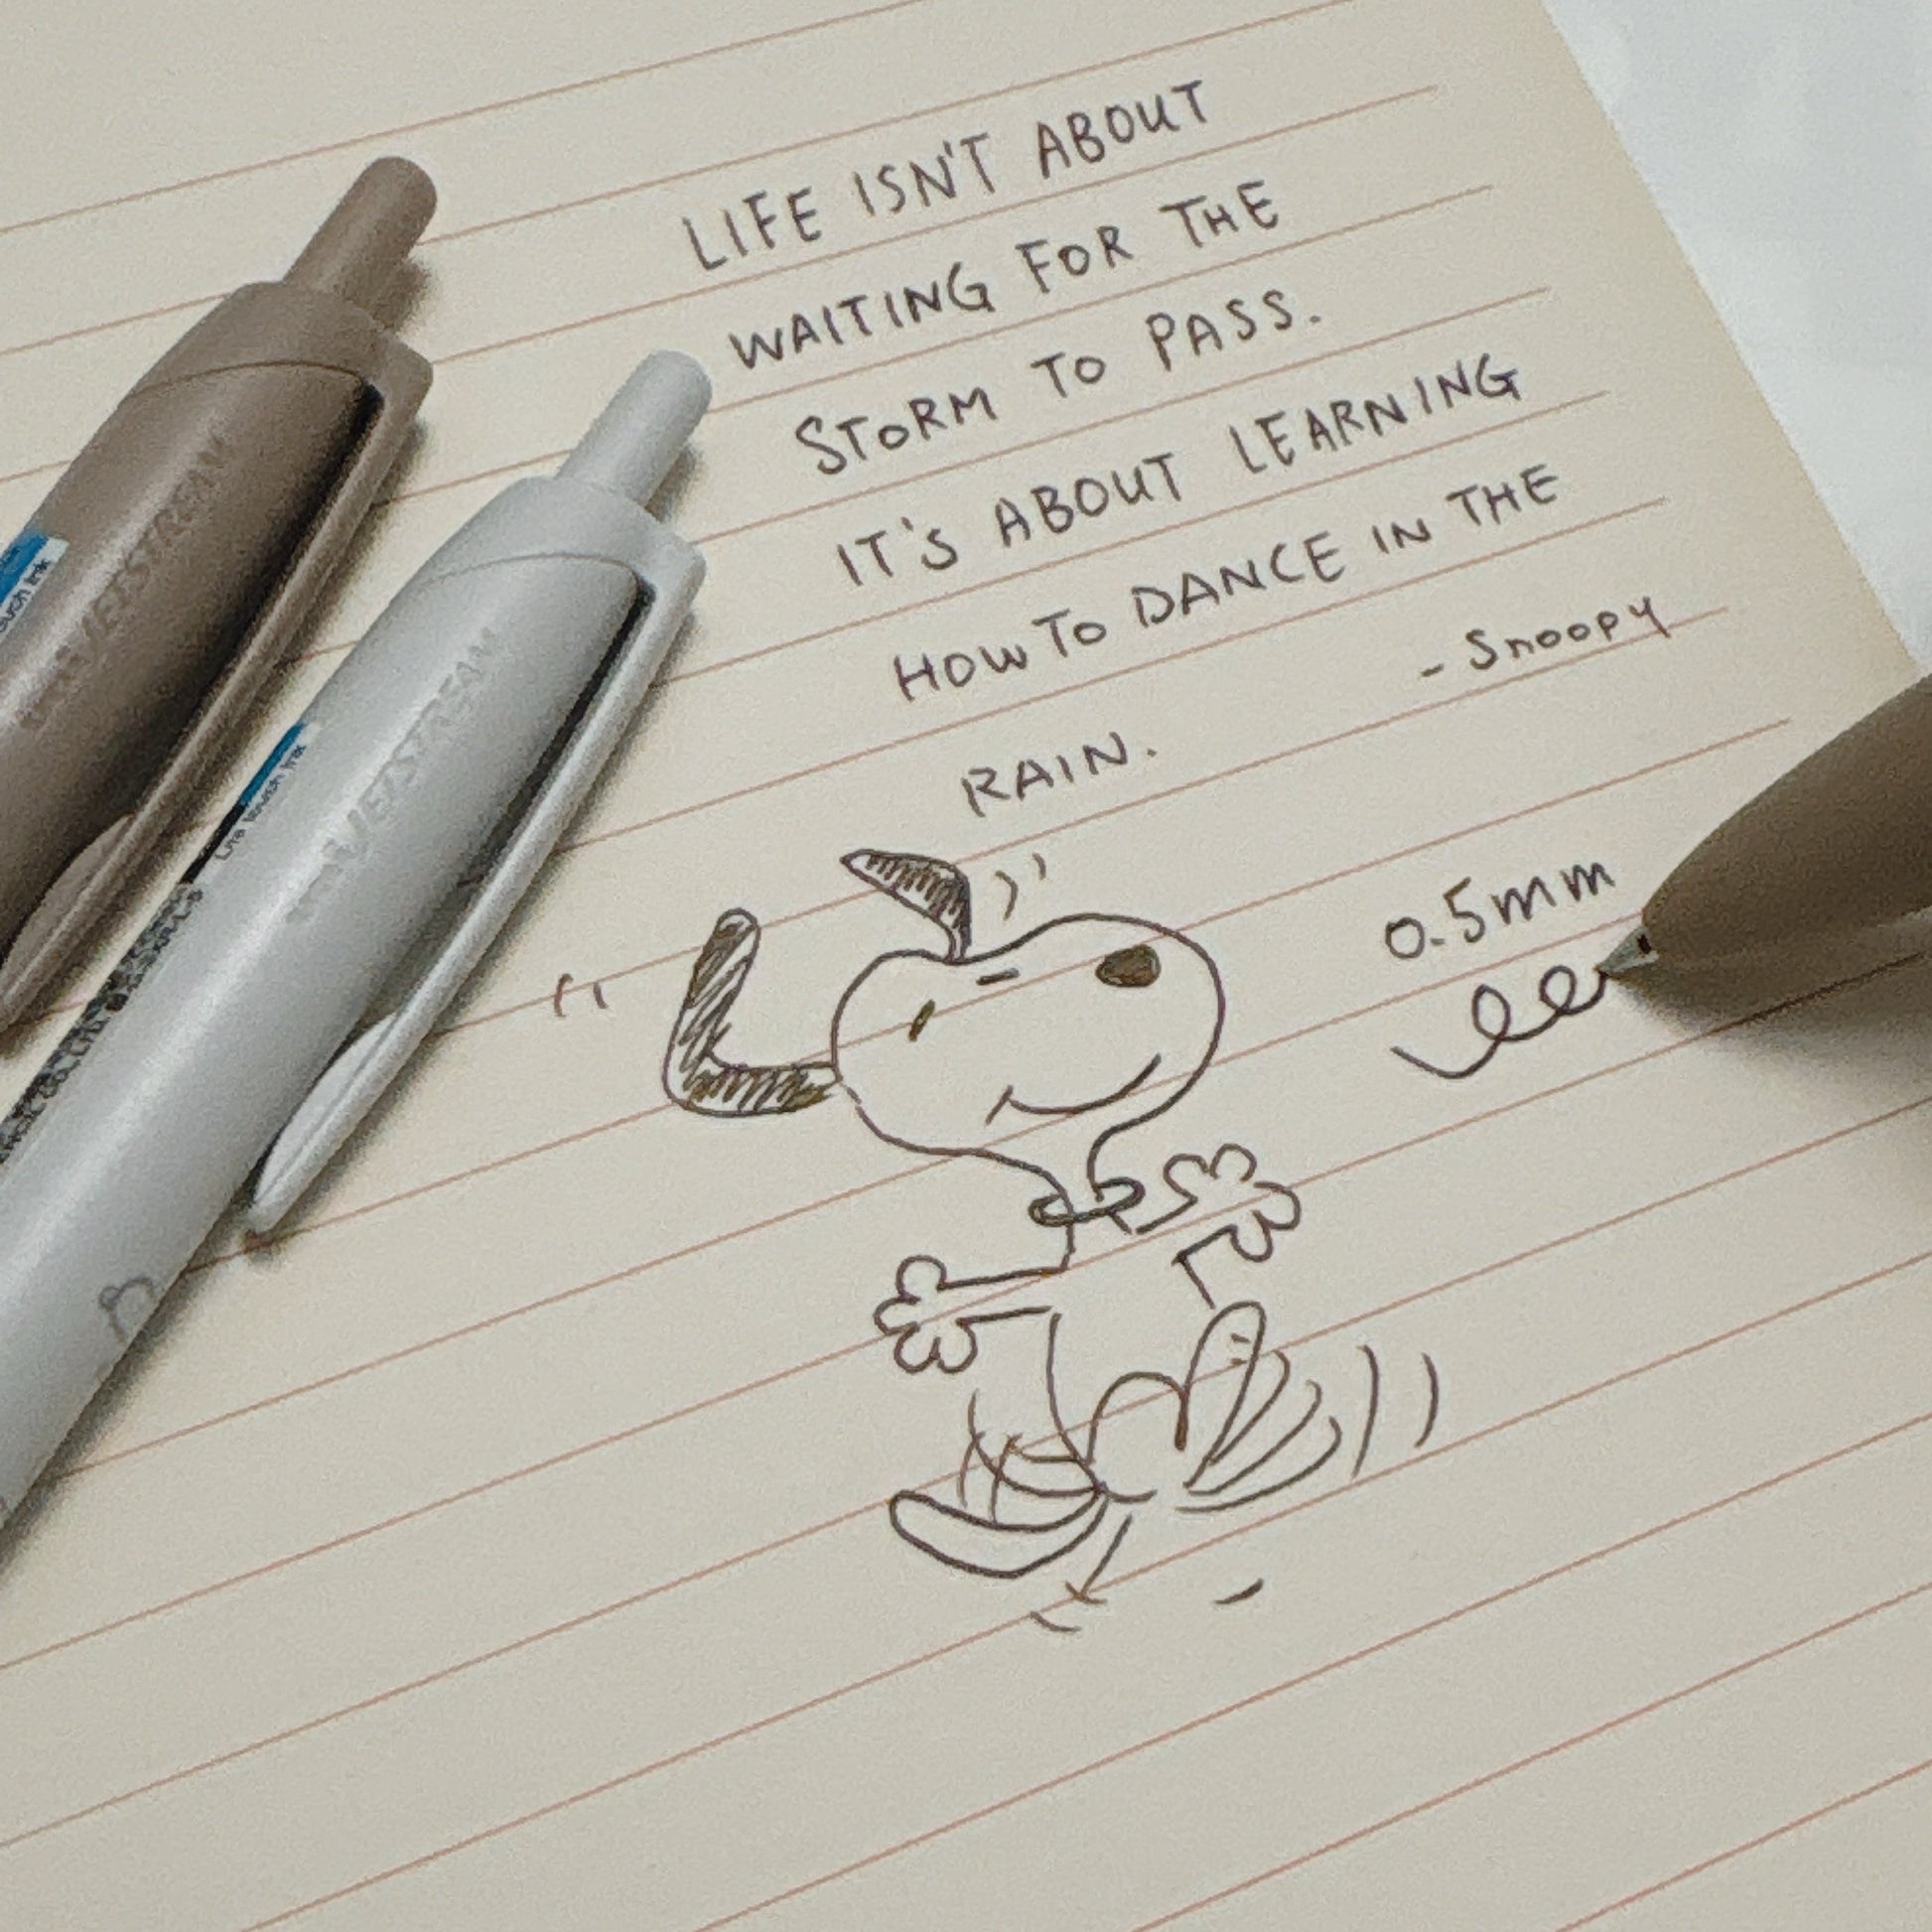 LIFE ISN'T ABOUT
WAITING FOR THE
STORM TO PASS.
IT'S ABOUT LEARNING
HOW TO DANCE IN THE
RAIN.
- Snoopy
0.5mm
JETSTREAM
Lite touch ink
JETSTREAM
touch ink